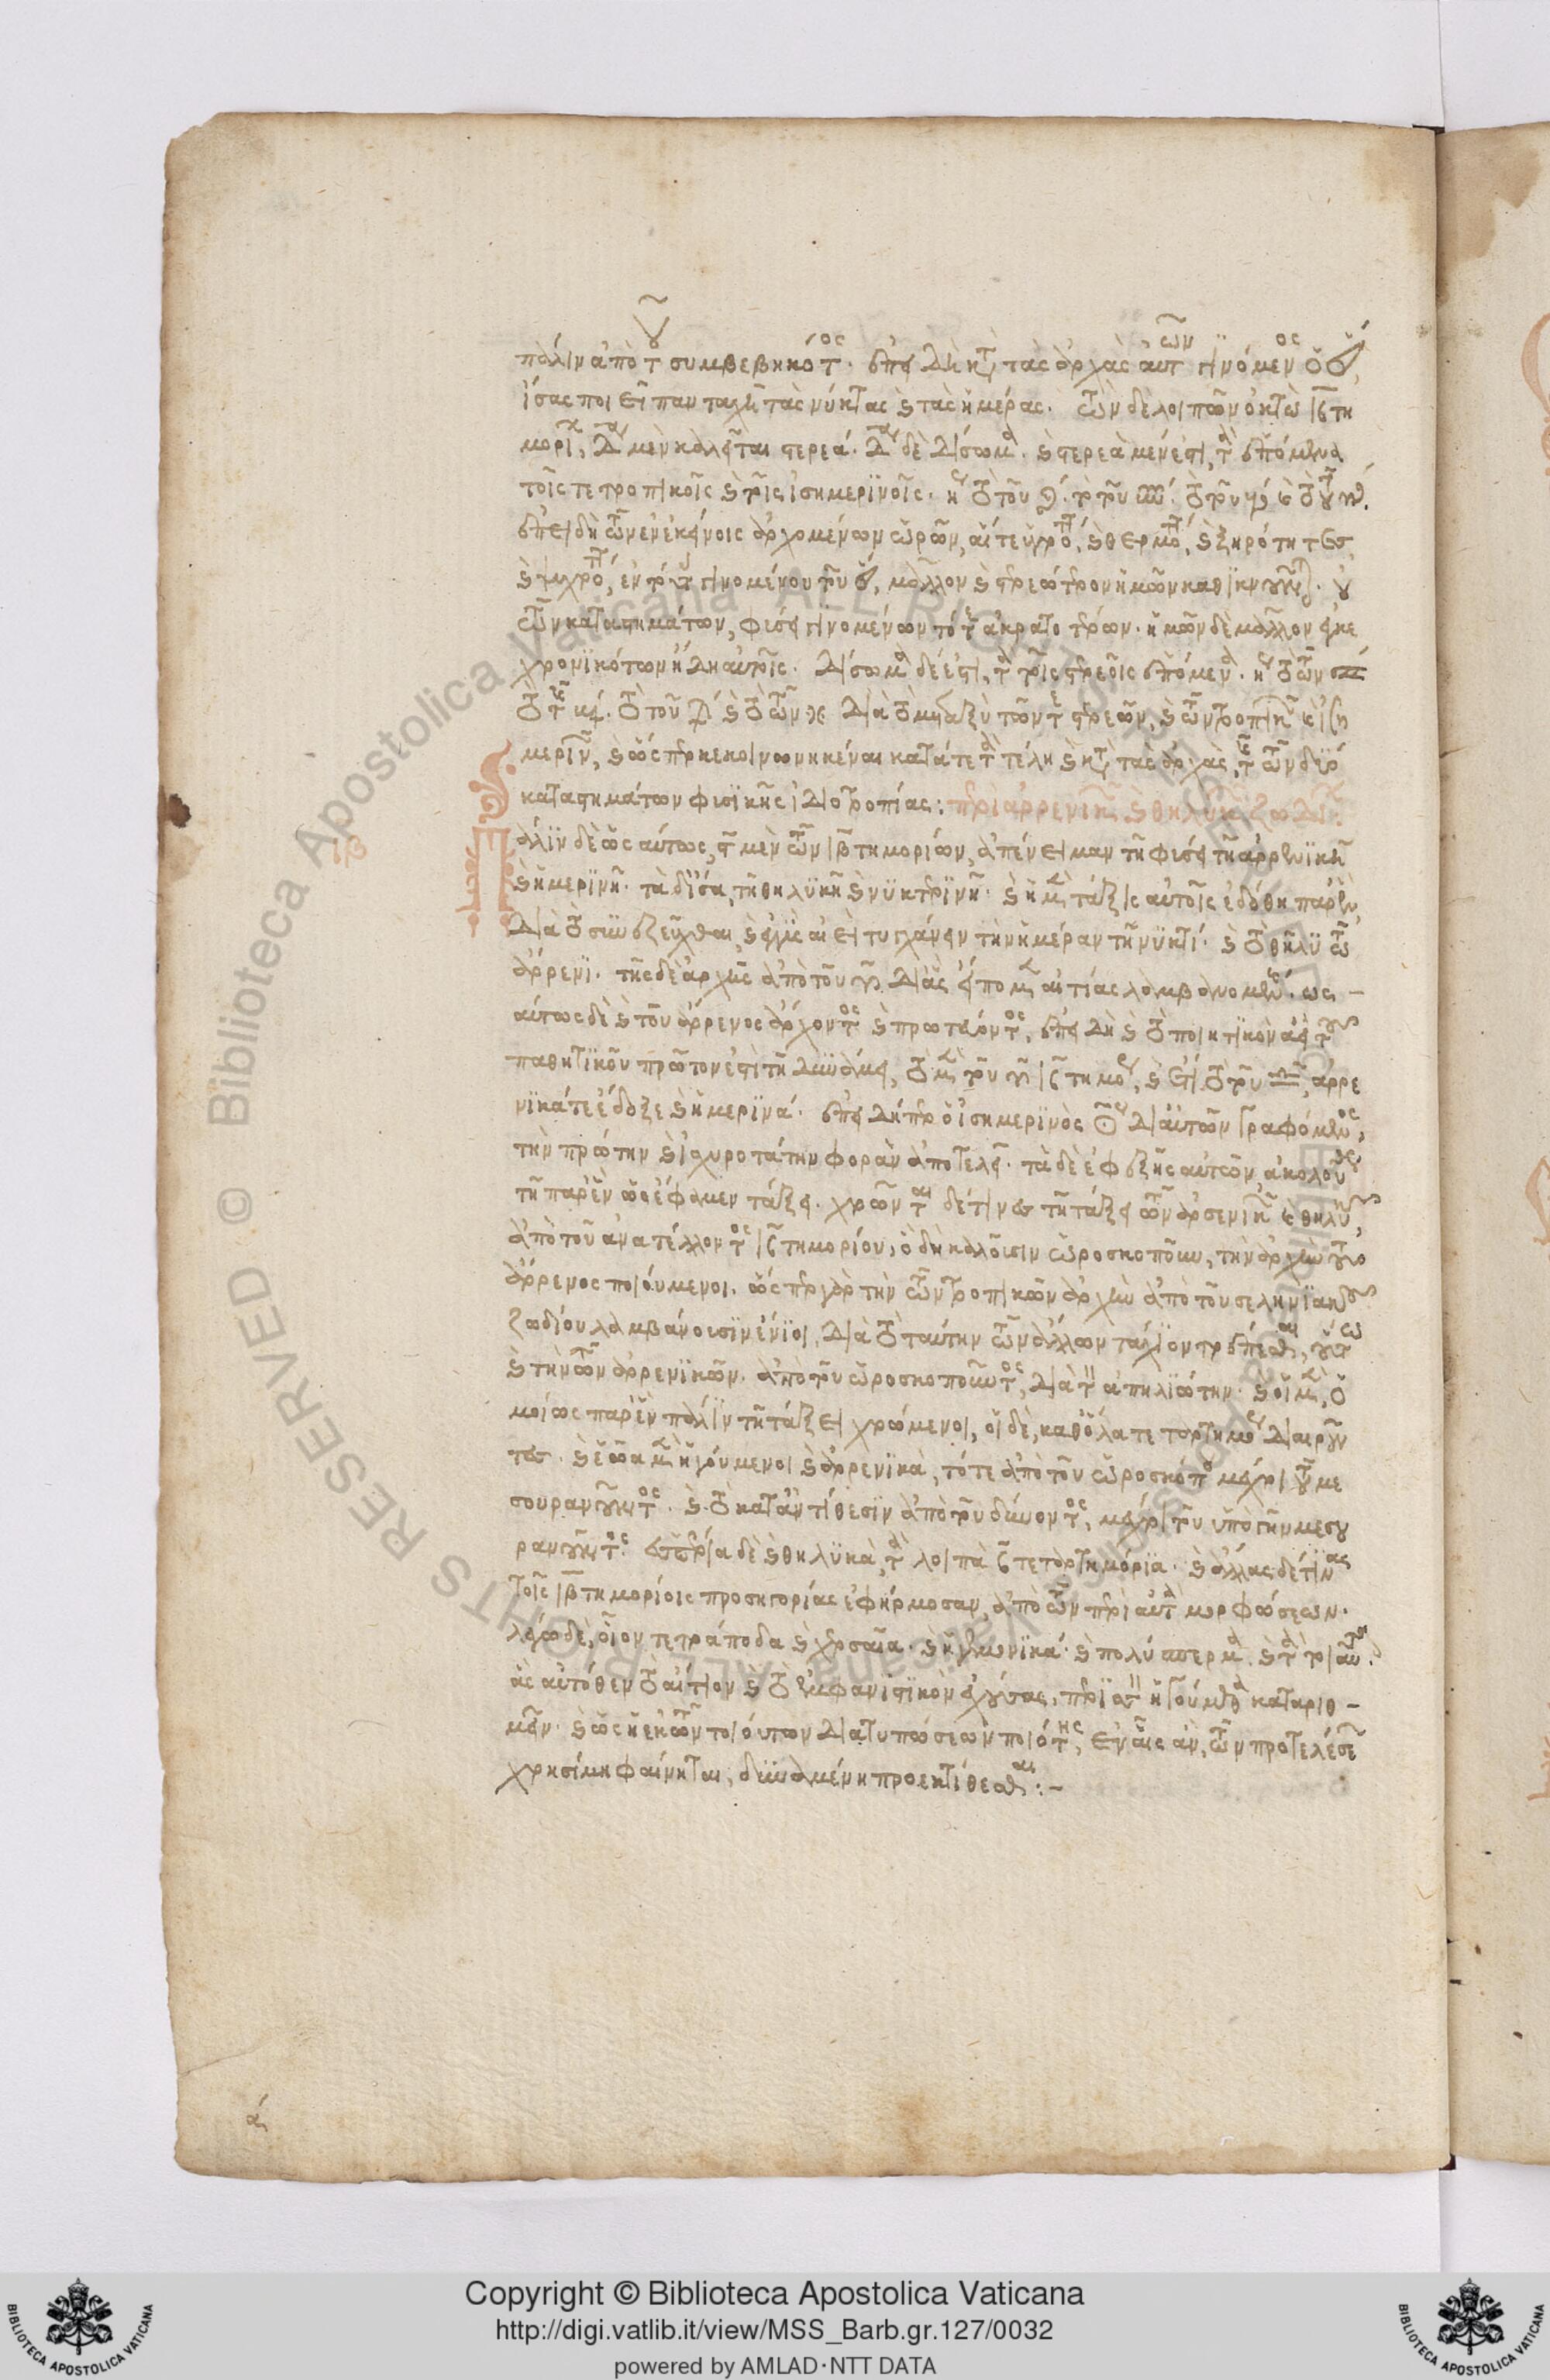 πάλιν ἀπὸ τοῦ συμβεβηκότος. ἐπειδὴ κατὰ τὰς ἀρχὰς αὐτῶν γινόμενος ὁ ☉
ἴσας ποιεῖ πανταχῆ τὰς νύκτας καὶ τὰς ἡμέρας. τῶν δὲ λοιπῶν ὀκτὼ ιβτη
μορίων, δ μὲν καλεῖται στερεά. δ δὲ δίσωμα. καὶ στερεὰ μέν ἐστι, τὰ ἑπόμενα
τοῖς τε τροπικοῖς καὶ τοῖς ἰσημερινοῖς.
ἐπειδὴ τῶν ἐν ἐκείνοις ἀρχομένων ὡρῶν, αἵ τε ὑγρότητες, καὶ θερμότητες, καὶ ξηρότητες
καὶ ψυχρότητες, ἐν τούτοις γινομένου τοῦ ☉, μᾶλλον καὶ στερεώτερον ἡμῶν καθικνοῦνται. οὐ
τῶν καταστημάτων, φύσει γινομένων τότε ἀκρατοτέρων. ἡμῶν δὲ μᾶλλον ἐγκε
χρονικότων ἤδη αὐτοῖς. δίσωμα δέ ἐστι, τὰ τοῖς στερεοῖς ἑπόμενα.
διὰ τὸ μεταξὺ πῶς εἶναι τῶν στερεῶν, καὶ τῶν τροπικῶν καὶ ἰση
μερινῶν, καὶ ὥσπερ κεκοινωνηκέναι κατά τε τὰ τέλη καὶ κατὰ τὰς ἀρχὰς, τῆς τῶν δύο
καταστημάτων φυσικῆς ἰδιοτροπίας: περὶ ἀρρενικῶν καὶ θηλυκῶν ζῳδίων
ιβ
Πάλιν δὲ ὡσαύτως, ϛ μὲν τῶν ιβτημορίων, ἀπένειμαν τῇ φύσει τῇ ἀρρενικῇ
καὶ ἡμερινῇ. τὰ δ' ἴσα, τῇ θηλυκῇ καὶ νυκτερινῇ. καὶ ἡ μὲν τάξις αὐτοῖς ἐδόθη παρ' ἓν,
διὰ τὸ συνεζεῦχθαι, καὶ ἐγγὺς ἀεὶ τυγχάνειν τὴν ἡμέραν τῇ νυκτί. καὶ τὸ θῆλυ τῷ
ἄρρενι. τῆς δὲ ἀρχῆς ἀπὸ τοῦ ♈ δι' ἃς εἴπομεν αἰτίας λαμβανομένης. ὡς –
αύτως δὲ καὶ τοῦ ἄρρενος ἄρχοντος καὶ πρωτεύοντος, ἐπειδὴ καὶ τὸ ποιητικὸν ἀεὶ τοῦ
παθητικοῦ πρῶτόν ἐστι τῇ δυνάμει, τὸ μὲν τοῦ ♈ ιβτημόριον, καὶ ἔτι τὸ τοῦ ♎, ἀρρε
νικά τε ἔδοξε καὶ ἡμερινά. ἐπειδήπερ ὁ ἰσημερινὸς κύκλος δι' αὐτῶν γραφόμενος,
τὴν πρώτην καὶ ἰσχυροτάτην φορὰν ἀποτελεῖ. τὰ δὲ ἐφεξῆς αὐτῶν ἀκολούθως
τῇ παρ' ἓν ὡς ἔφαμεν τάξει. χρῶνται δέ τινες τῇ τάξει τῶν ἀρσενικῶν καὶ θηλυκῶν,
ἀπὸ τοῦ ἀνατέλλοντος ιβτημορίου, ὃ δὴ καλοῦσιν ὡροσκοποῦν, τὴν ἀρχὴν τοῦ
ἄρρενος ποιούμενοι. ὥσπερ γὰρ τὴν τῶν τροπικῶν ἀρχὴν ἀπὸ τοῦ σεληνιακοῦ
ζῳδίου λαμβάνουσιν ἔνιοι, διὰ τὸ ταύτην τῶν ἄλλων τάχιον τρέπεσθαι, οὕτω
καὶ τὴν τῶν ἀρρενικῶν. ἀπὸ τοῦ ὡροσκοποῦντος, διὰ τὸ ἀπηλιώτην. καὶ οἱ μὲν, ὁ
μοίως παρ' ἓν πάλιν τῇ τάξει χρώμενοι, οἱ δὲ, καθ' ὅλα τεταρτημόρια διαιροῦν
τες. καὶ ἑῷα μὲν ἡγούμενοι καὶ ἀρρενικὰ, τό τε ἀπὸ τοῦ ὡροσκόπου μέχρι τοῦ με
σουρανοῦντος. καὶ τὸ κατ' ἀντίθεσιν ἀπὸ τοῦ δύνοντος, μέχρι τοῦ ὑπὸ γῆν μεσου
ρανοῦντος. ἑσπέρια δὲ καὶ θηλυκὰ, τὰ λοιπὰ β τεταρτημόρια. καὶ ἄλλας δέ τινας
τοῖς ιβτημορίοις προσηγορίας ἐφήρμοσαν, ἀπὸ τῶν περὶ αὐτὰ μορφώσεων.
λέγω δὲ, οἷον τετράποδα καὶ χερσαῖα. καὶ ἡγεμονικά. καὶ πολύσπερμα. καὶ τὰ τοιαῦτα.
ἃς αὐτόθεν τὸ αἴτιον καὶ τὸ ἐμφανιστικὸν ἐχούσας, περιττὸν ἡγούμεθα καταριθ –
μεῖν. καὶ ὡς ἡ ἐκ τῶν τοιούτων διατυπώσεων ποιότης, ἐν αἷς ἂν, τῶν προτελέσεων
χρησίμη φαίνηται, δυναμένη προεκτίθεσθαι: –
Copyright © Biblioteca Apostolica Vaticana
http://digi.vatlib.it/view/MSS_Barb.gr.127/0032
powered by AMLAD·NTT DATA